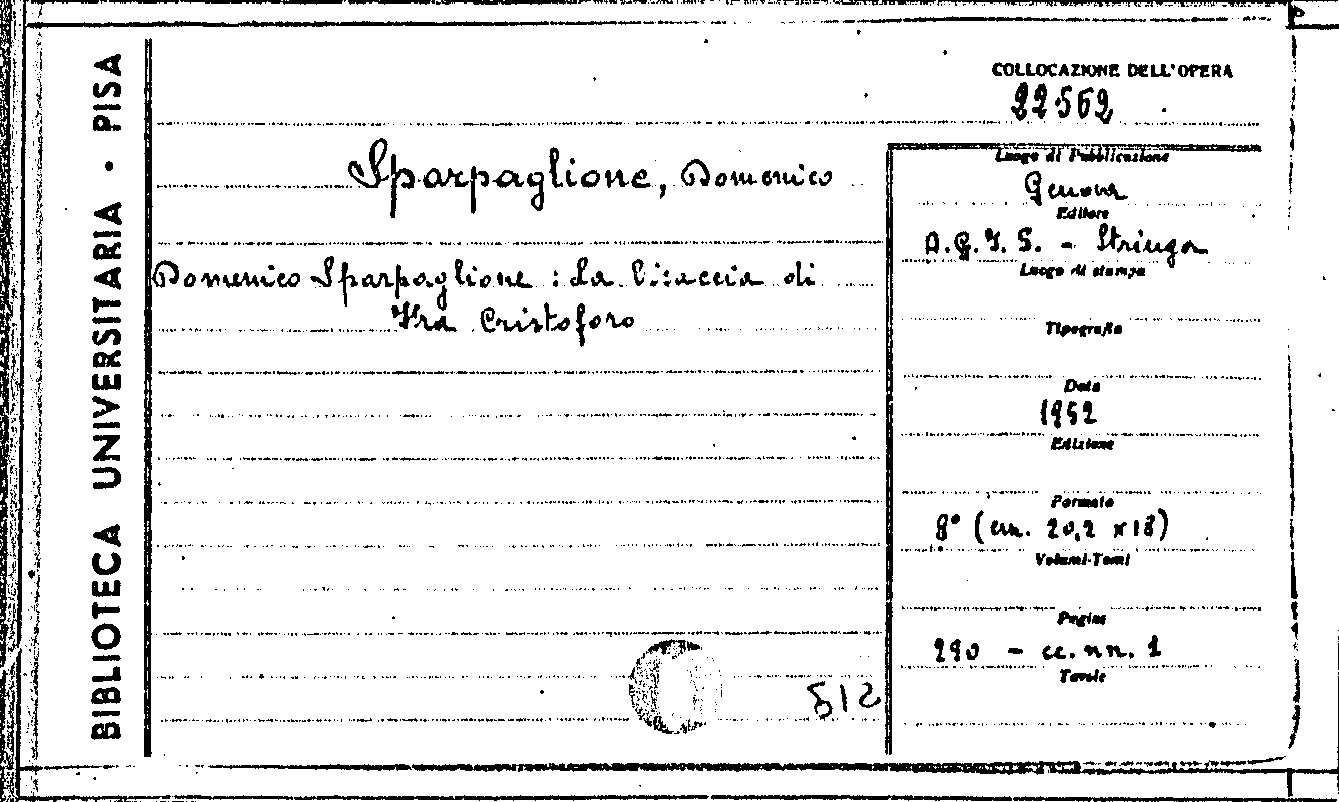 BIBLIOTECA UNIVERSITARIA · PISA
COLLOCAZIONE DELL'OPERA
22562
Sparpaglione, Domenico
Domenico Sparpaglione : La bisaccia di
Fra Cristoforo
Luogo di Pubblicazione
Genova
Editore
A.G.I.S. - Stringa
Luogo di stampa
Tipografia
Data
1952
Edizione
Formato
8° (cm. 20,2 x 13)
Volumi-Tomi
Pagine
290 - cc. nn. 1
Tavole
512